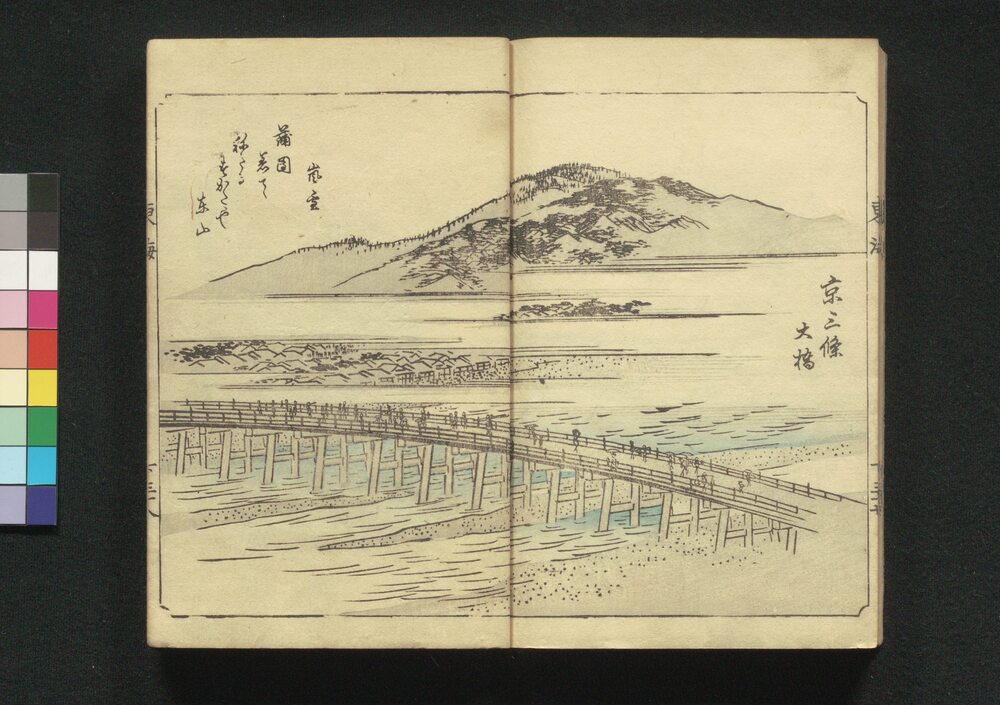 京三條
大橋
嵐雪
蒲団
着て
ねたる
すがたや
東山
東海